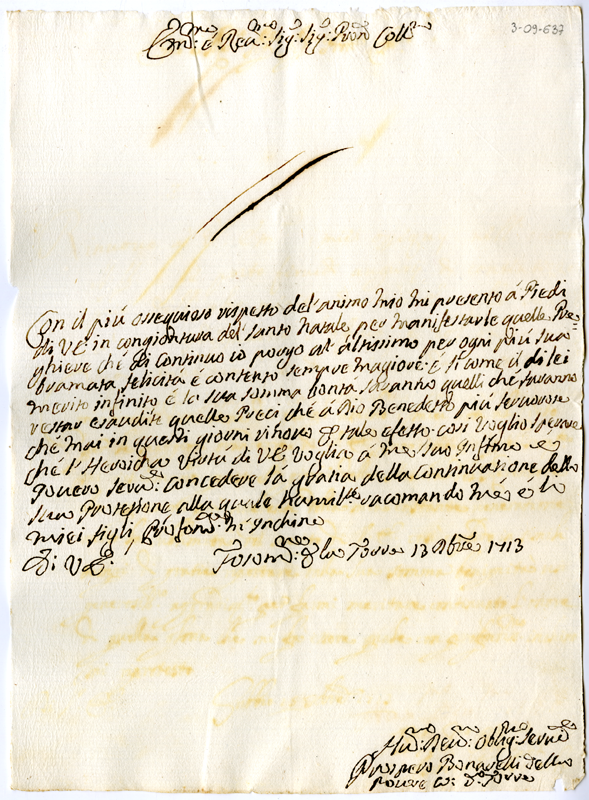 3-09-637
Em:mo é Rev:mo Sig:r Sig:r Pron Coll:mo
Con il piú ossequioso rispetto del' animo mio mi presento á Piedi
di VE: in congiontura del' santo Natale per manifestarle quelle Pre=
ghiere ché di continuo io porgo al' altissimo per ogni piú sua
bramata felicitá é contento sempre magiore: é si come il di lei
merito infinito é la sua somma bontá saranno quelli ché faranno
restar esaudite quelle Preci ché á Dio Benedetto piú fervorose
ché mai in questi giorni rinovo p tale efetto cosi voglio sperare
che l'Heroicha virtú di VE voglia á me suo Infimo é
povero serv:e concedere lá gratia della continuatione della
sua Protetione alla quale humil:te racomando mé é li
miei figli, é profon:te m'Inchino
Di VE:
la Torre 13 Xbre 1713
Hu:mo Dev:mo Oblig:mo Serv:e
Prospero Bonarelli della
Rovere C: d:a Torre